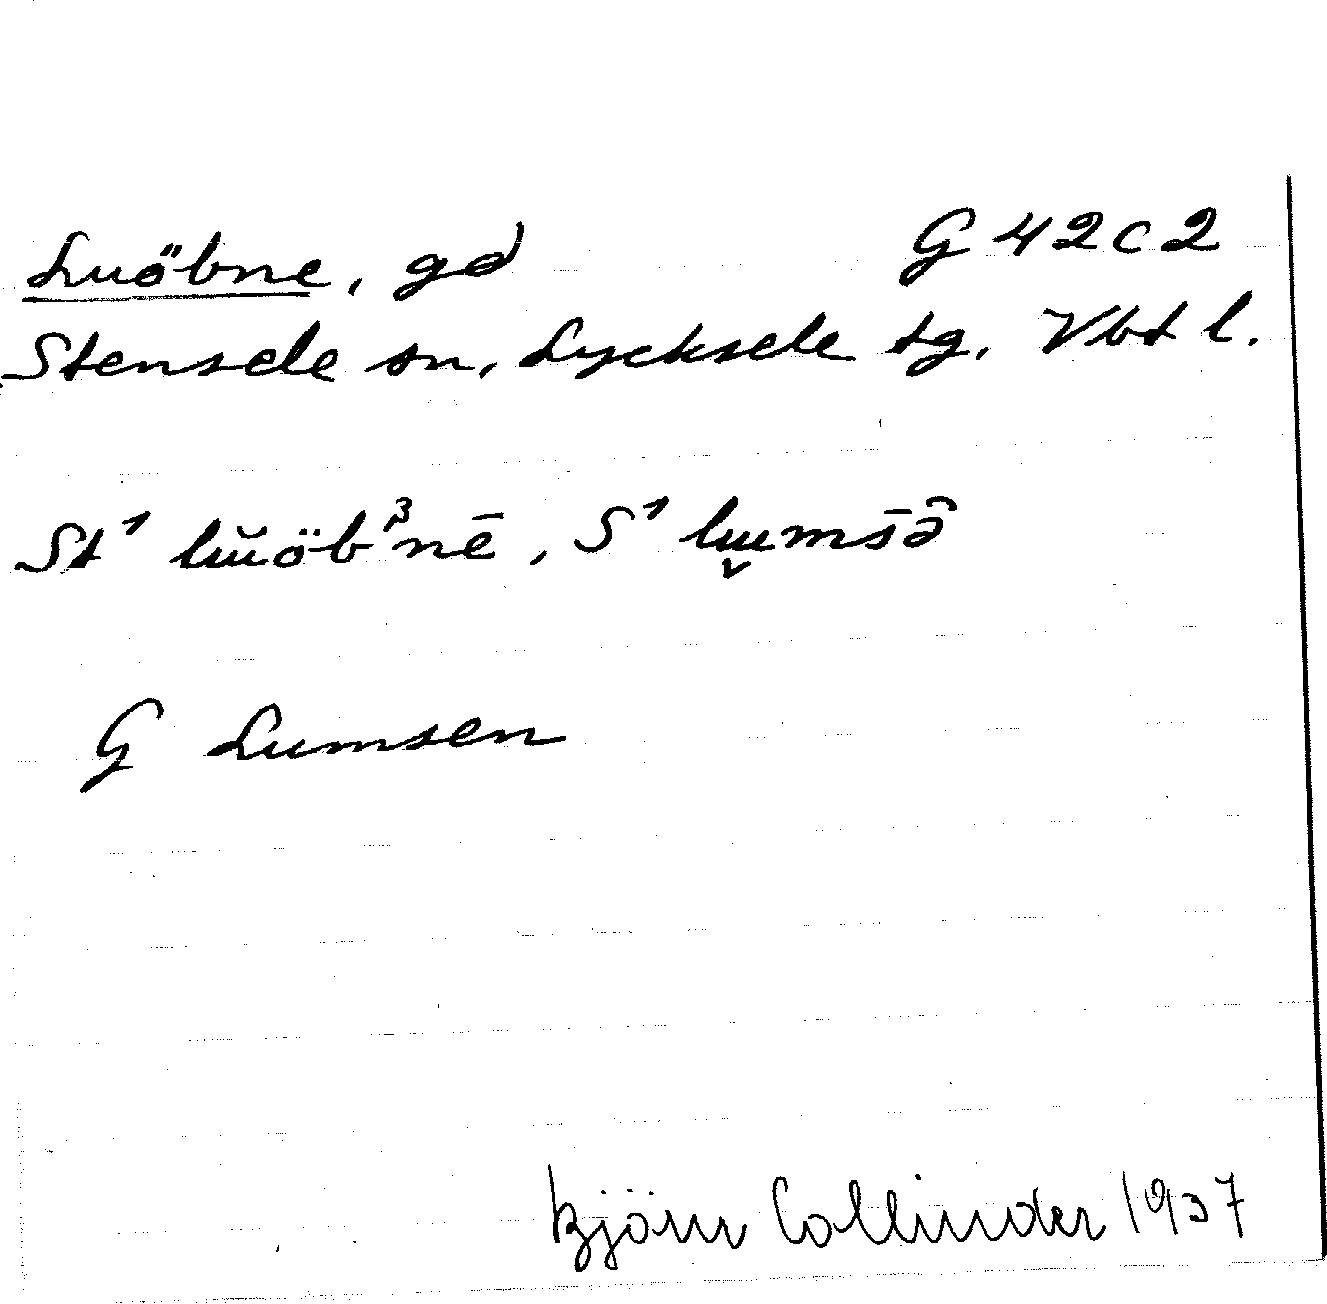 Luöbne, gd G 42 c 2
Stensele sn, Lycksele tg, Vbt l.
St¹ lŭöbᶾnē, S¹ lu̬ums̄ə̂
G Lumsen
Björn Collinder 1937